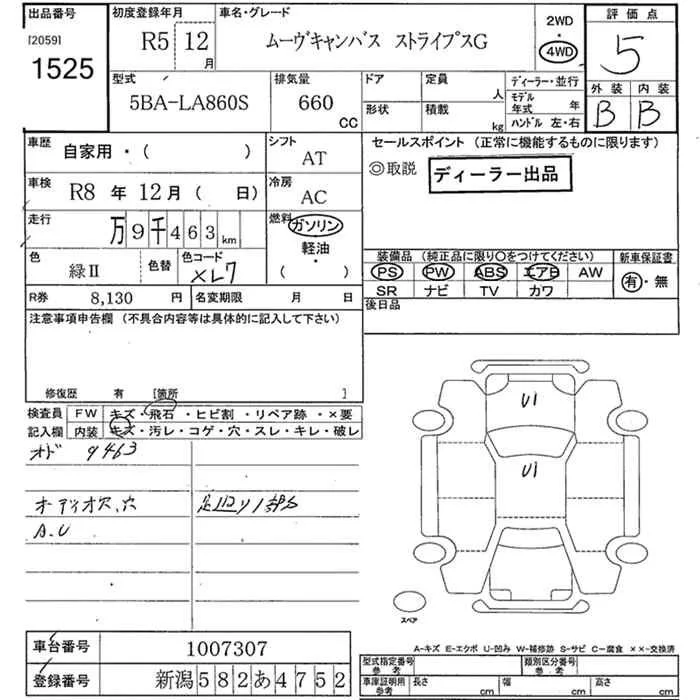 出品番号
[2059]
1525
初度登録年月
R5 12月
車名・グレード
ムーヴキャンバス ストライプスG
2WD
・
4WD
評価点
5
外装 内装
B B
型式
5BA-LA860S
排気量
660
CC
ドア
形状
定員
人
積載
kg
ディーラー・並行
モデル年式 年
ハンドル 左・右
車歴
自家用・( )
シフト
AT
車検
R8 年 12月( 日)
冷房
AC
走行
万9千463km
燃料
ガソリン
軽油
・
( )
色
緑Ⅱ
色替
色コード
XL7
R券 8,130 円
名変期限 月 日
セールスポイント (正常に機能するものに限ります)
◎取説 ディーラー出品
装備品 (純正品に限り○をつけてください)
PS PW ABS エアB AW
SR ナビ TV カワ
新車保証書
有・無
後日品
注意事項申告欄 (不具合内容等は具体的に記入して下さい)
修復歴 有 [箇所 ]
検査員
記入欄
FW キズ・飛石・ヒビ割・リペア跡・×要
内装 キズ・汚レ・コゲ・穴・スレ・キレ・破レ
オド 9463
オーディオ穴、穴
A、U
U1
U1
スペア
A-キズ E-エクボ U-凹み W-補修跡 S-サビ C-腐食 ××-交換済
車台番号 1007307
登録番号 新潟582あ4752
型式指定番号
参考
類別区分番号
参考
車庫証明用
参考
長さ cm
幅 cm
高さ cm